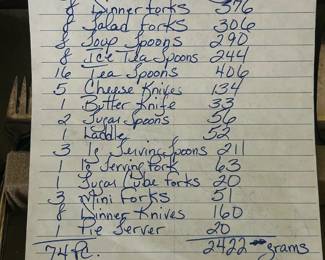 8 Dinner Forks 376
8 Salad Forks 306
8 Soup Spoons 290
8 Ice Tea Spoons 244
16 Tea Spoons 406
5 Cheese Knives 134
1 Butter Knife 33
2 Sugar Spoons 56
1 Laddle 52
3 Lg Serving Spoons 211
1 Lg Serving Fork 63
1 Sugar Cube Forks 20
3 Mini Forks 51
8 Dinner Knives 160
1 Pie Server 20
74 Pc. 2422 grams